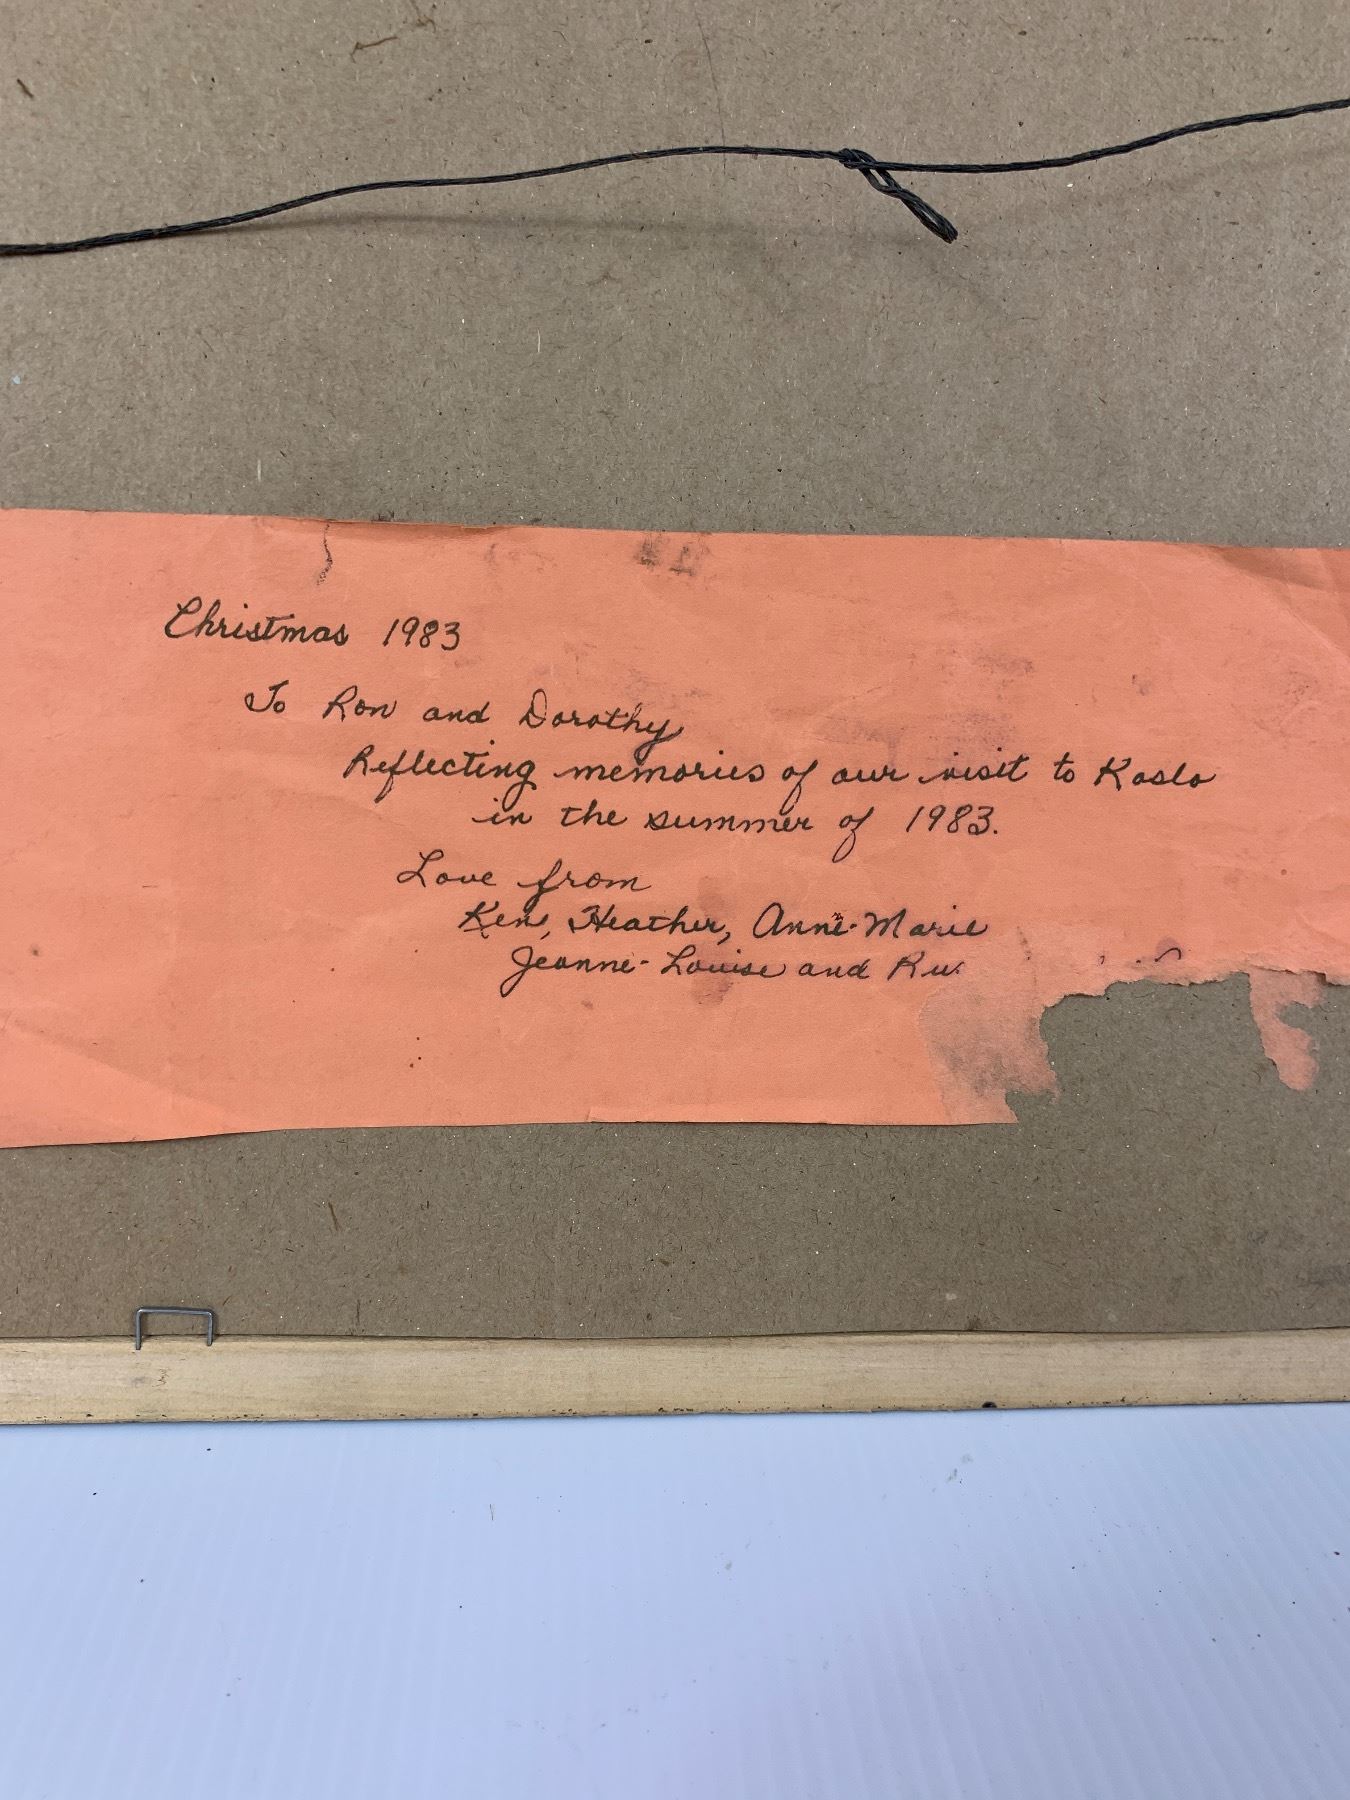 Christmas 1983
To Ron and Dorothy
Reflecting memories of our visit to Kaslo
in the summer of 1983.
Love from
Ken, Heather, Anne-Marie
Jeanne-Louise and